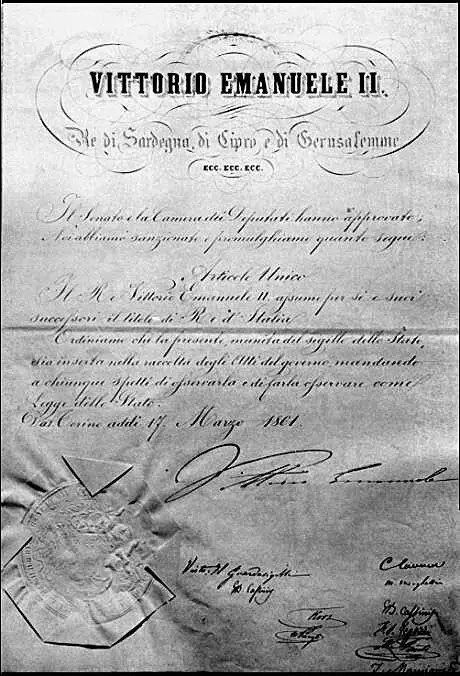 VITTORIO EMANUELE II.
Re di Sardegna, di Cipro, e di Gerusalemme
ECC. ECC. ECC.
Il Senato e la Camera dei Deputati hanno approvato;
Noi abbiamo sanzionato e promulghiamo quanto segue:
Articolo Unico
Il Re Vittorio Emanuele II assume per sè e suoi
successori il titolo di Re d'Italia.
Ordiniamo che la presente, munita del sigillo dello Stato,
sia inserta nella raccolta degli Atti del governo, mandando
a chiunque spetti di osservarla e di farla osservare come
Legge dello Stato.
Dat. Torino addi 17 Marzo 1861.
Vittorio Emanuele
Visto Il Guardasigilli
G. Cassinis
C. Cavour
M. Minghetti
G. Cassinis